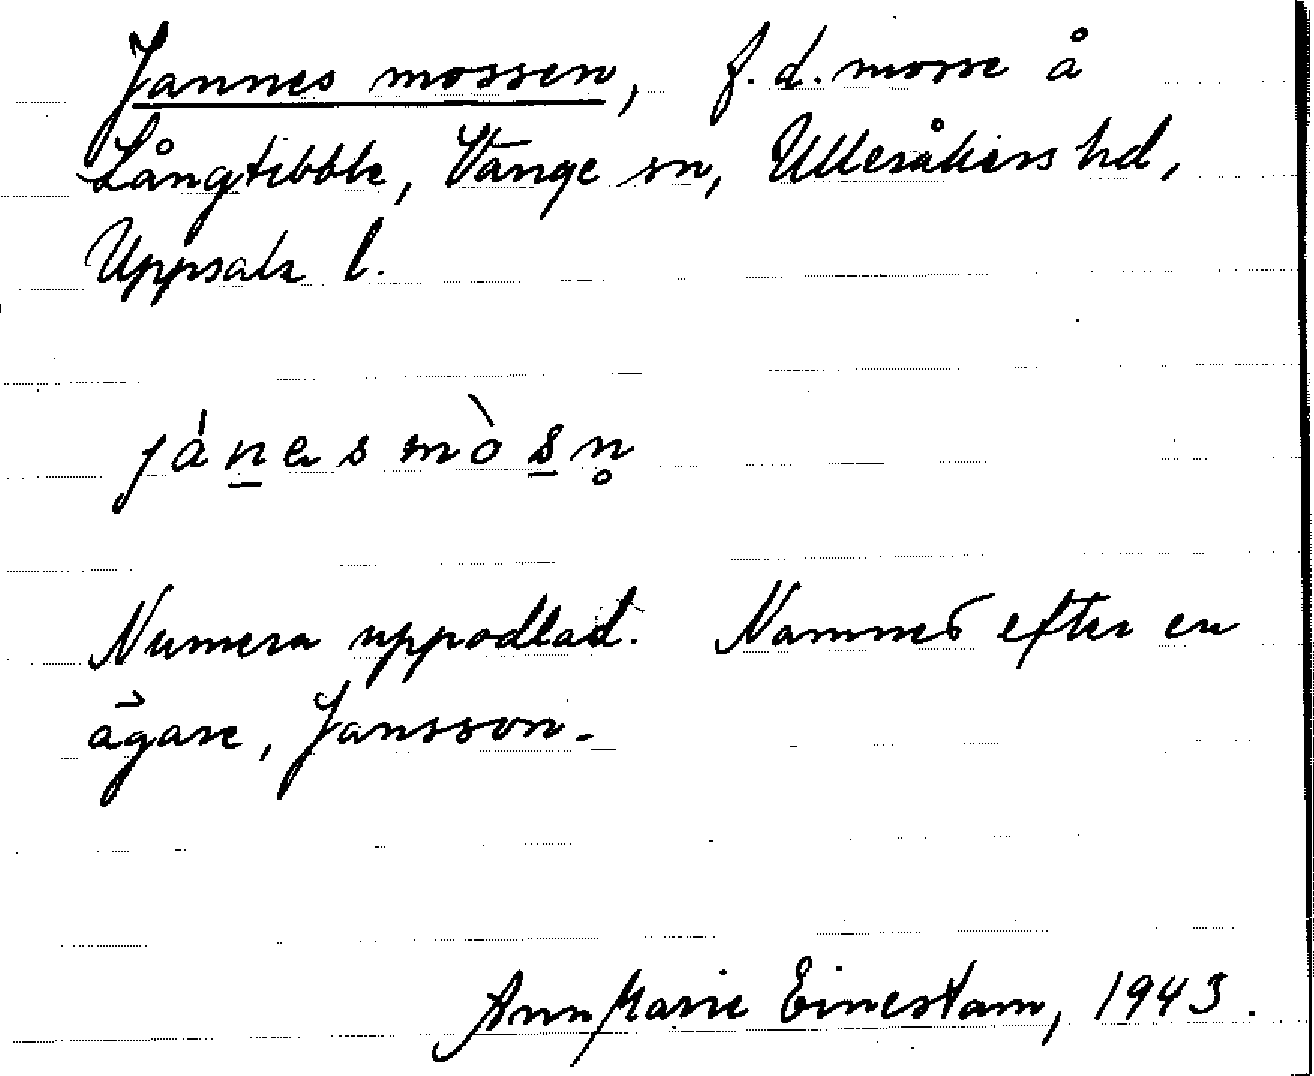 Jannes mossen, f.d. mosse å
Långtibble, Vänge sn, Ulleråkers hd,
Uppsala l.
jánesmòsn̥
Numera uppodlad. Namnet efter en
ägare, Jansson.
Ann Marie Einestam, 1943.